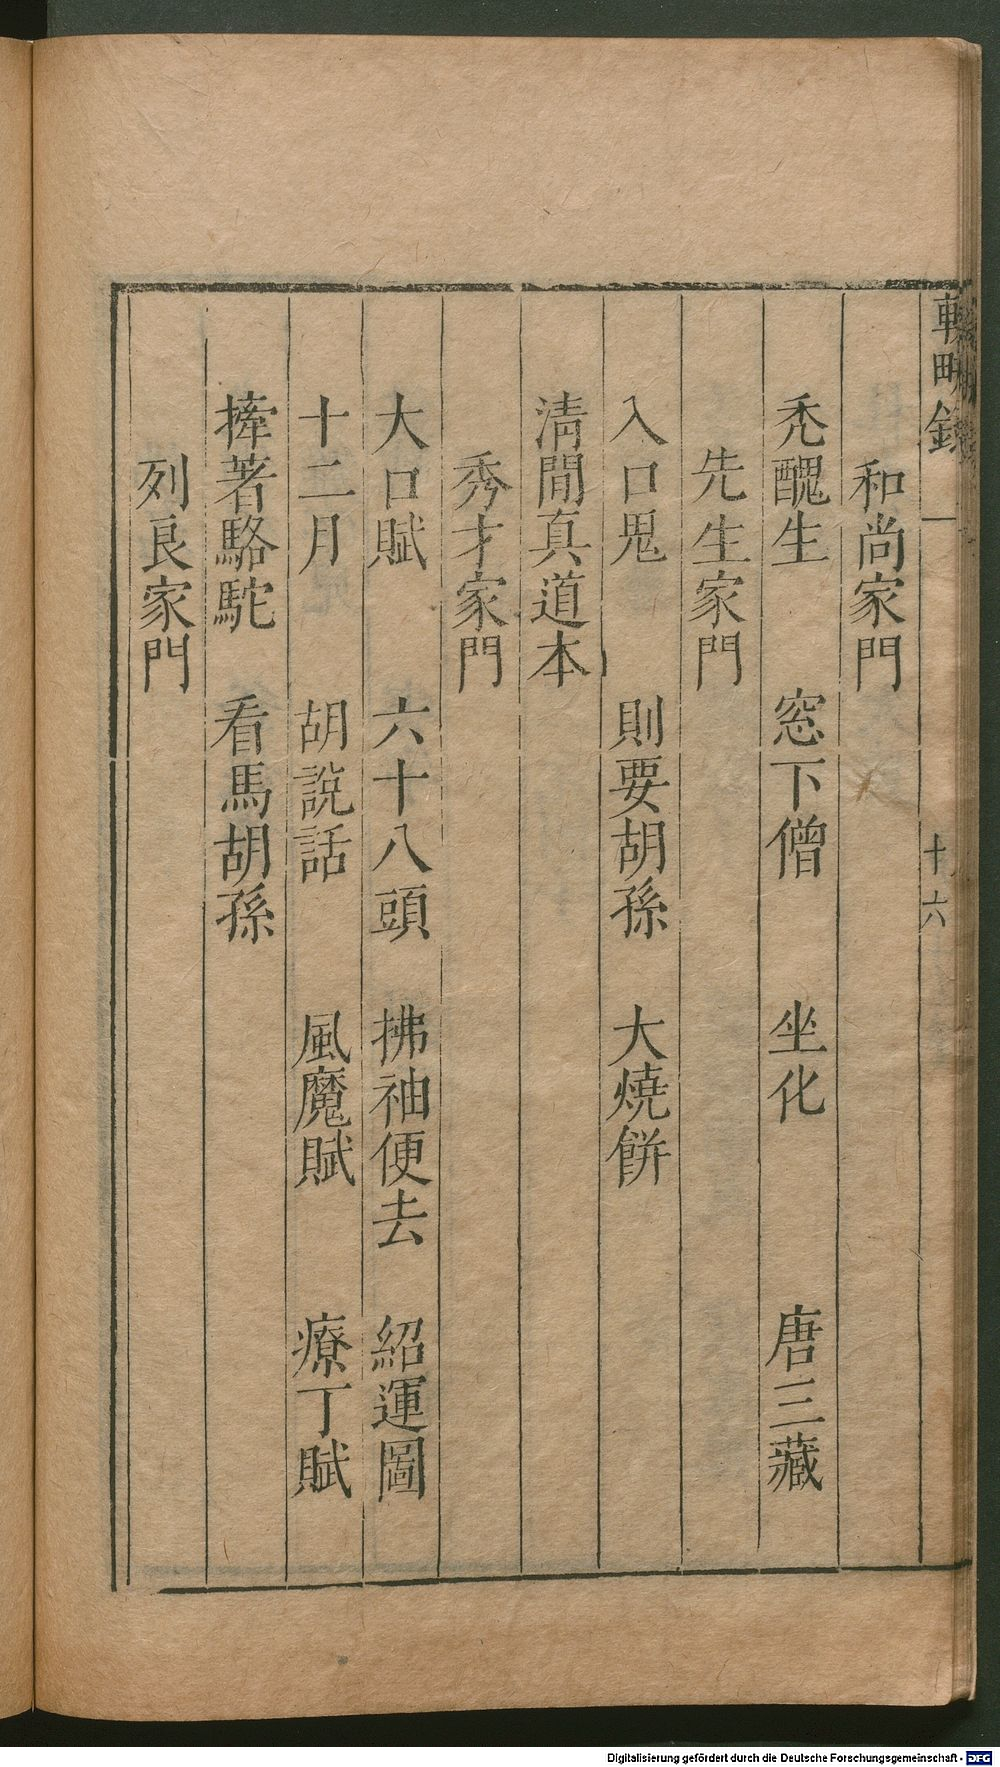 和尚家門
禿醜生 窓下僧 坐化 唐三藏
先生家門
入口鬼 則要胡孫 大燒餅
清閒真道本
秀才家門
大口賦 六十八頭 拂袖便去 紹運圖
十二月 胡說話 風魔賦 療丁賦
捧著駱駝 看馬胡孫
列良家門
十六
Digitalisierung gefördert durch die Deutsche Forschungsgemeinschaft - DFG